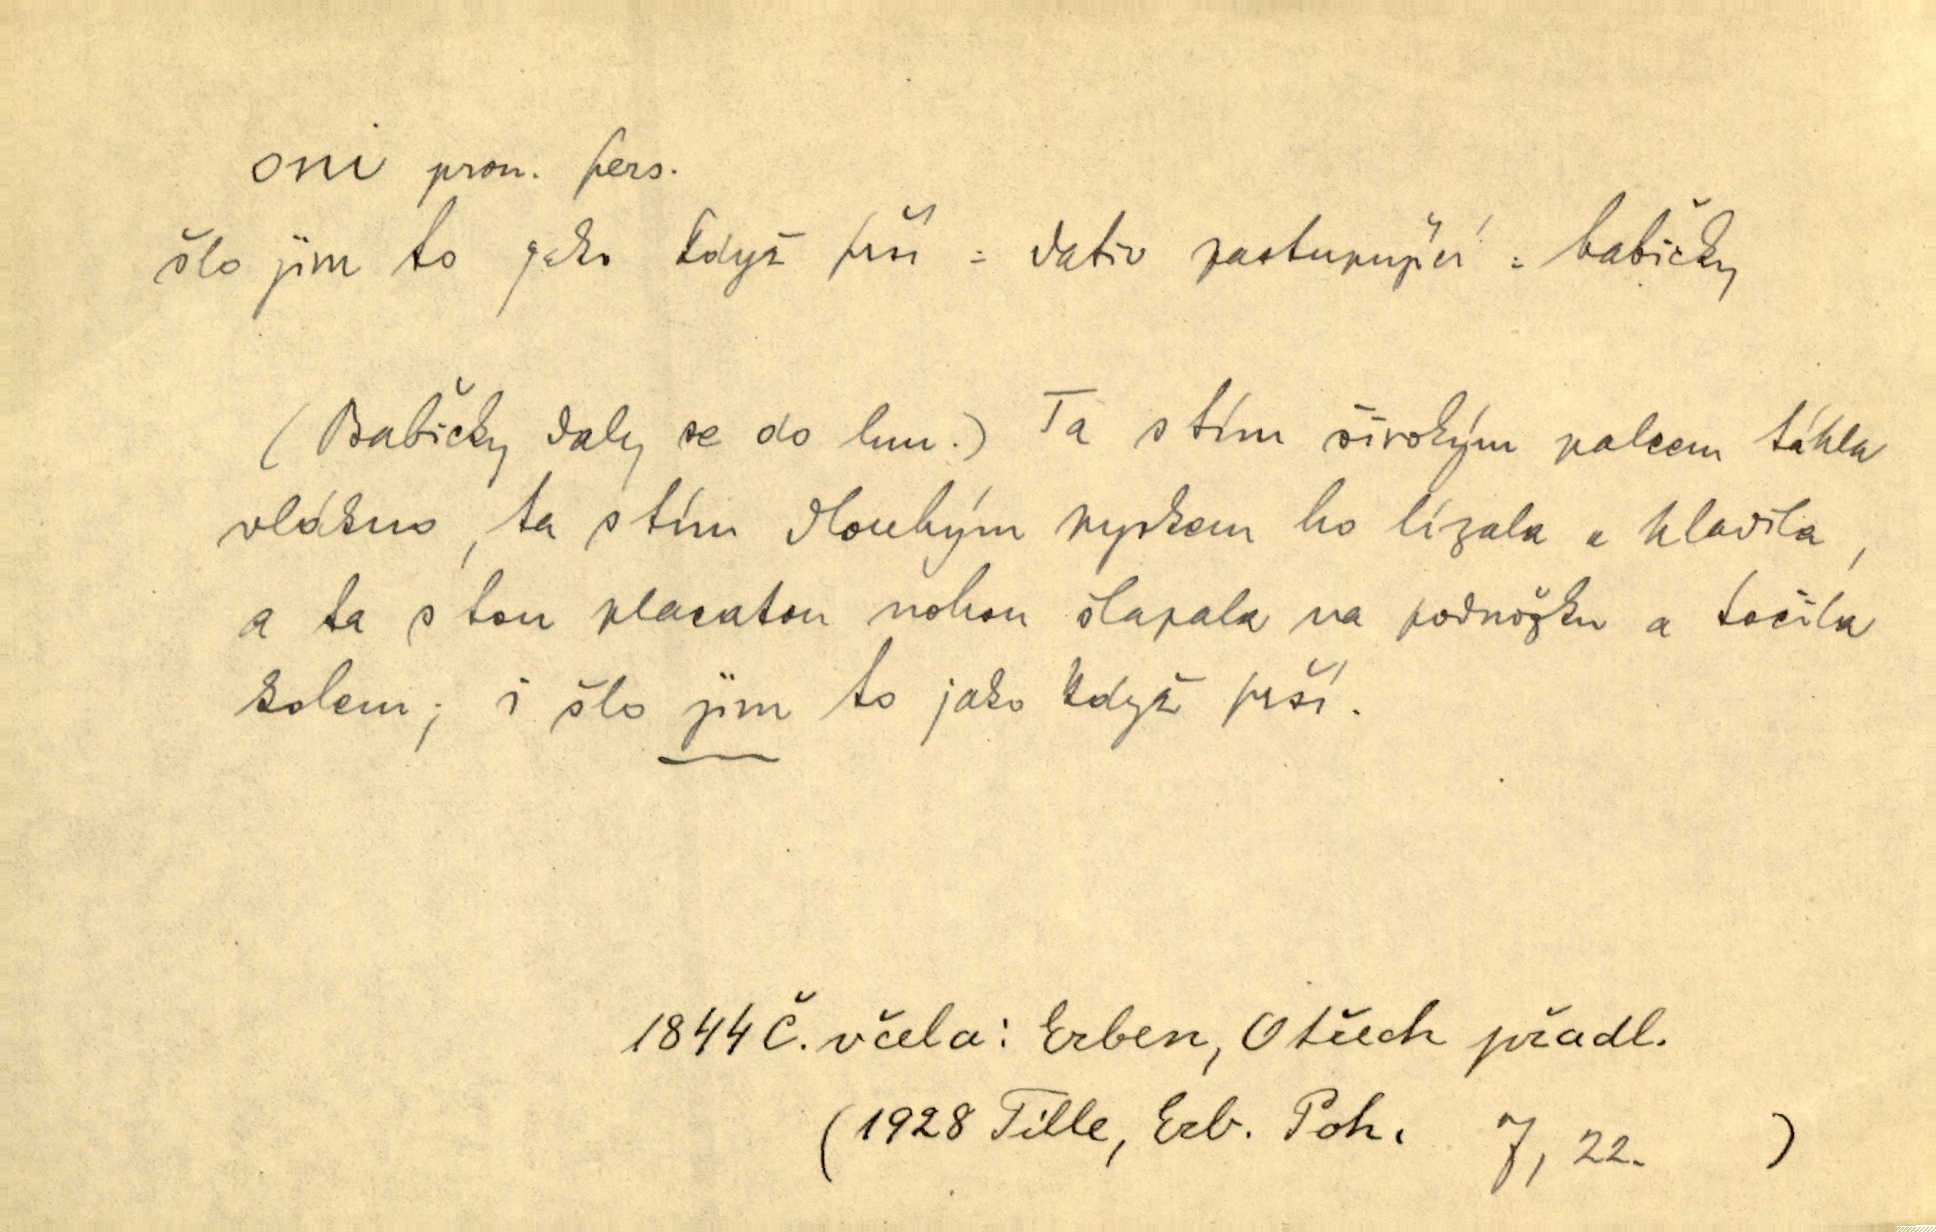 oni pron. pers.
šlo jim to jako když prší = dativ zastupující = babičky
(Babičky daly se do lnu.) Ta s tím širokým palcem táhla
vlákno, ta s tím dlouhým pyskem ho lízala a hladila,
a ta s tou placatou nohou šlapala na podnožku a točila
kolem; i šlo jim to jako když prší.
1844 Č. včela: Erben, O třech přadl.
(1928 Tille, Erb. Poh. 7, 22. )